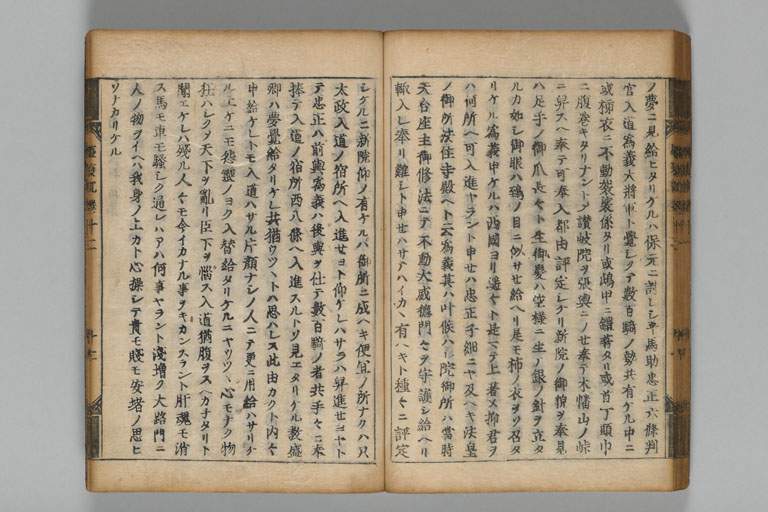 ノ夢ニ見給ヒタリケルハ保元ニ討レシ平馬助忠正六條判
官入道爲義大將軍ト覺シクテ數百騎ノ勢共有ケル中ニ
或柿衣ニ不動袈裟係タリ或鴟甲ニ鎧著タリ或首丁頭巾
ニ腹卷キタリナントシテ讚岐院ヲ張輿ニノセ奉テ木幡山ノ峠
ニ昇スヘ奉テ可奉入都由評定シケリ新院ノ御貌ヲ奉見
ハ足手ノ御爪長々ト生御髮ハ空樣ニ生ノ銀ノ針ヲ立タ
ルカ如シ御眼ハ鵄ノ目ニ似サセ給ヘリ是モ柿ノ衣ヲソ召タ
リケル爲義申ケルハ西國ヨリ遙々ト是マテ上著メ抑君ヲ
ハ何所ヘ可入進ヤラント申セハ忠正子細ニヤ及ヘキ法皇
ノ御所法住寺殿ヘト云爲義其ハ叶候ハシ院御所ハ當時
天台座主御修法ニテ不動大威德門々ヲ守護シ給ヘリ
輙入レ奉リ難シト申セハサテハイカヽ有ヘキト種々ニ評定
シケルニ新院仰ノ有ケルハ御所ニ成ヘキ便宜ノ所ナクハ只
太政入道ノ宿所ヘ入進セヨト仰ケレハサラハ昇進セヨヤト
テ忠正ハ前輿爲義ハ後輿ヲ仕テ數百騎ノ者共手々ニ奉
捧テ入道ノ宿所西八條ヘ入進スルトソ見エタリケル教盛
卿ハ夢覺給タリケレ共猶ウツヽトハ思ハレス此由カクト内々
申給ケレトモ入道ハサル片顏ナシノ人ニテ更ニ用給ハサリケ
ルエケニモ怨靈ノヨク入替給タリケルニヤウツヽ心モナク物
狂ハシクテ天下ヲ亂リ臣下ヲ惱ス入道猶腹ヲスヘカナタリト
聞エケレハ殘ル人々モ今イカナル事ヲキカンスラント肝魂モ消
ス馬モ車モ騷シク通レハアハ何事ヤラント淺増ク大路門ニ
人ノ物ヲイヘハ我身ノ上カト心操シテ貴モ賤モ安堵ノ思ヒ
ソナカリケル